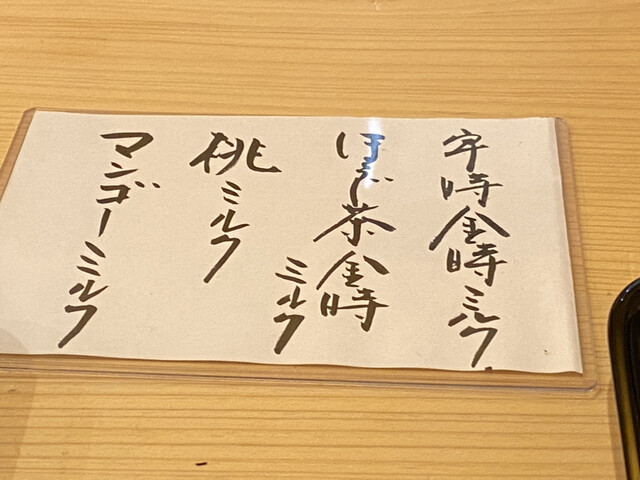 宇時金時ミルク
ほうじ茶金時
ミルク
桃ミルク
マンゴーミルク